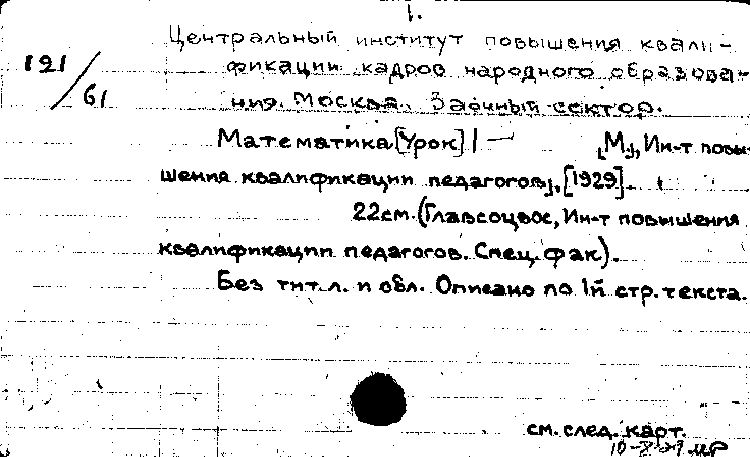 1.
Центральный институт повышения квали-
121/61
фикации кадров народного образова-
ния. Москва. Заочный сектор.
Математика [Урок] 1 — [М.], Ин-т повы-
шения квалификации педагогов, [1929].
22см. (Главсоцвос, Ин-т повышения
квалификации педагогов. Спец. фак).
Без тит. л. и обл. Описано по 1й стр. текста.
см. след. карт.